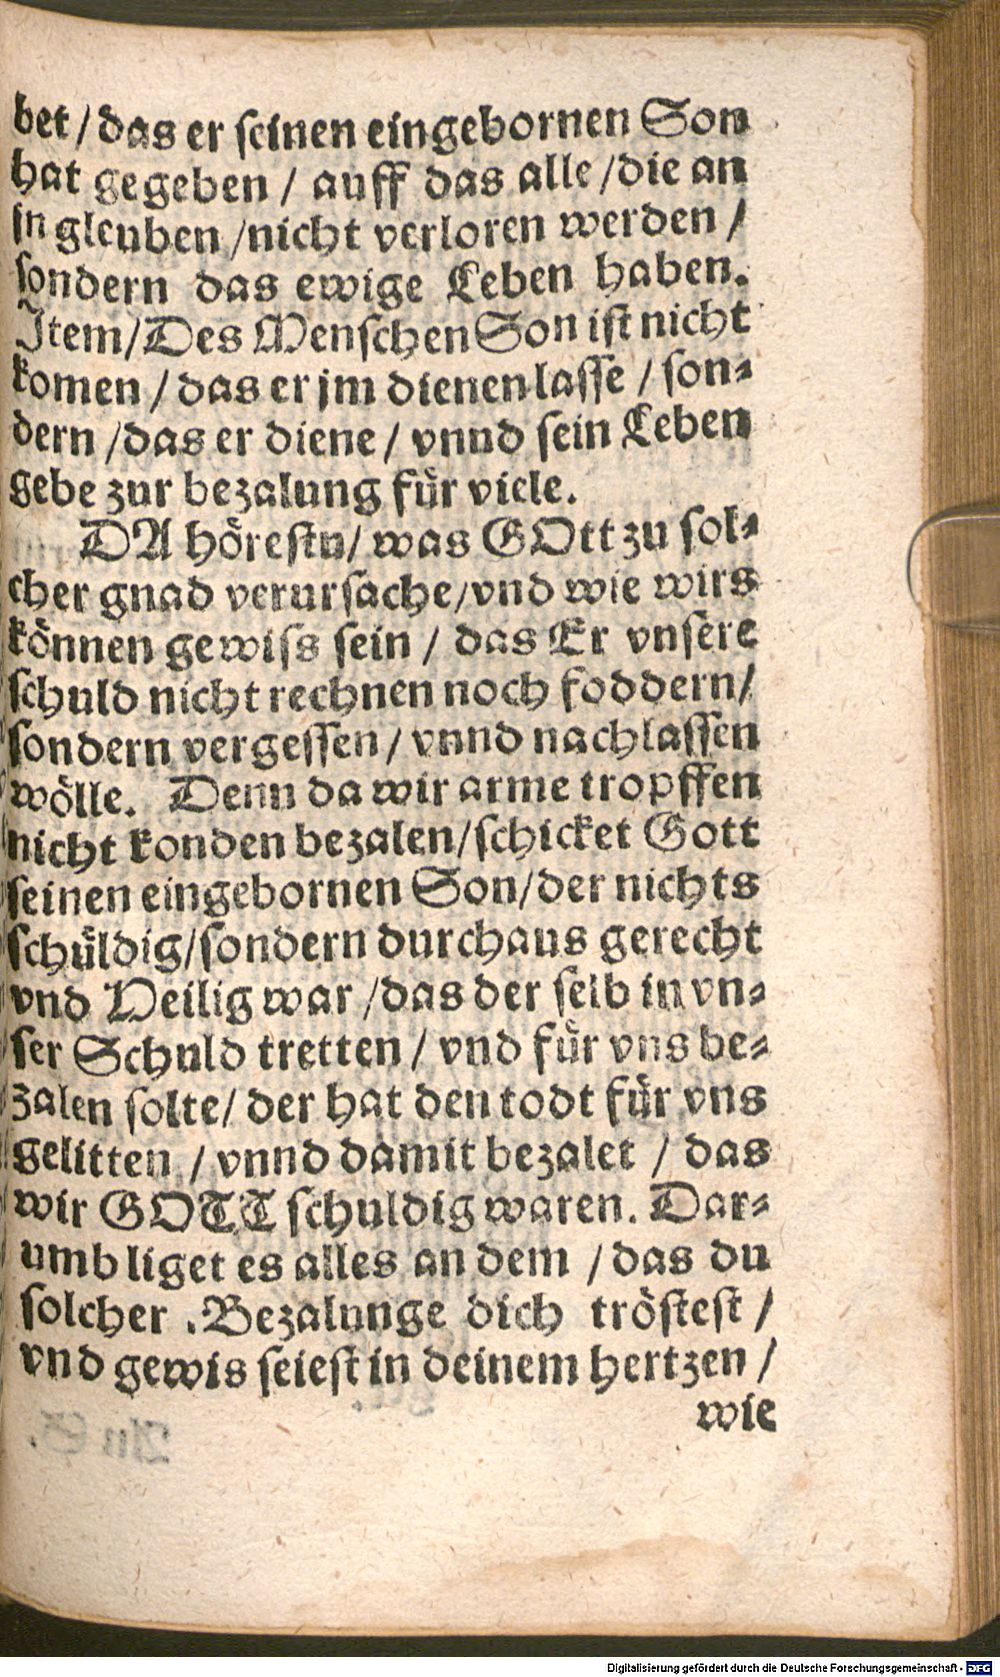 bet / das er seinen eingebornen Son
hat gegeben / auff das alle / die an
jn gleuben / nicht verloren werden /
sondern das ewige Leben haben.
Jtem / Des Menschen Son ist nicht
komen / das er jm dienen lasse / son⸗
dern / das er diene / vnnd sein Leben
gebe zur bezalung für viele.
DA hörestu / was GOtt zu sol⸗
cher gnad verursache / vnd wie wirs
können gewiss sein / das Er vnsere
schuld nicht rechnen noch foddern /
sondern vergessen / vnnd nachlassen
wölle. Denn da wir arme tropffen
nicht konden bezalen / schicket Gott
seinen eingebornen Son / der nichts
schüldig / sondern durchaus gerecht
vnd Heilig war / das der selb in vn⸗
ser Schuld tretten / vnd für vns be⸗
zalen solte / der hat den todt für vns
gelitten / vnnd damit bezalet / das
wir GOTT schuldig waren. Dar⸗
umb liget es alles an dem / das du
solcher . Bezalunge dich tröstest /
vnd gewis seiest in deinem hertzen /
wie
Digitalisierung gefördert durch die Deutsche Forschungsgemeinschaft - DFG